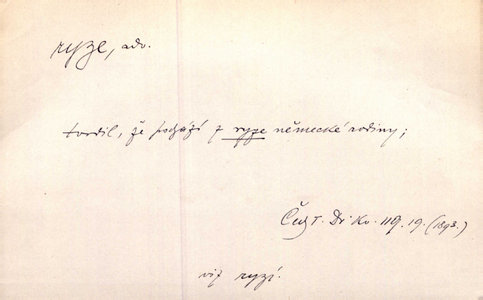 ryze, adv.
tvrdil, že pochází z ryze německé rodiny;
Čech. Dr. Kv. 119. 19. (1893.)
viz ryzí.